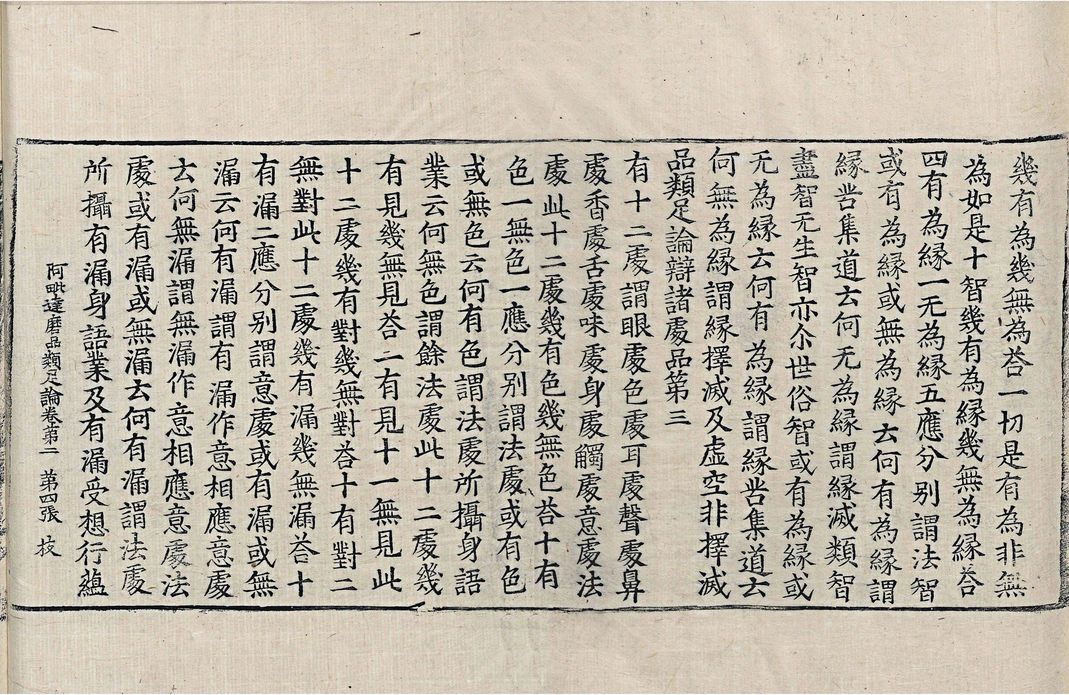 幾有為幾無為荅一切是有為非無
為如是十智幾有為緣幾無為緣荅
四有為緣一无為緣五應分別謂法智
或有為緣或無為緣云何有為緣謂
緣苦集道云何无為緣謂緣滅類智
盡智无生智亦尒世俗智或有為緣或
无為緣云何有為緣謂緣苦集道云
何無為緣謂緣擇滅及虛空非擇滅
品類足論辯諸處品第三
有十二處謂眼處色處耳處聲處鼻
處香處舌處味處身處觸處意處法
處此十二處幾有色幾無色荅十有
色一無色一應分別謂法處或有色
或無色云何有色謂法處所攝身語
業云何無色謂餘法處此十二處幾
有見幾無見荅一有見十一無見此
十二處幾有對幾無對荅十有對二
無對此十二處幾有漏幾無漏荅十
有漏二應分別謂意處或有漏或無
漏云何有漏謂有漏作意相應意處
云何無漏謂無漏作意相應意處法
處或有漏或無漏云何有漏謂法處
所攝有漏身語業及有漏受想行蘊
阿毗達磨品類足論卷第二 第四張 枝